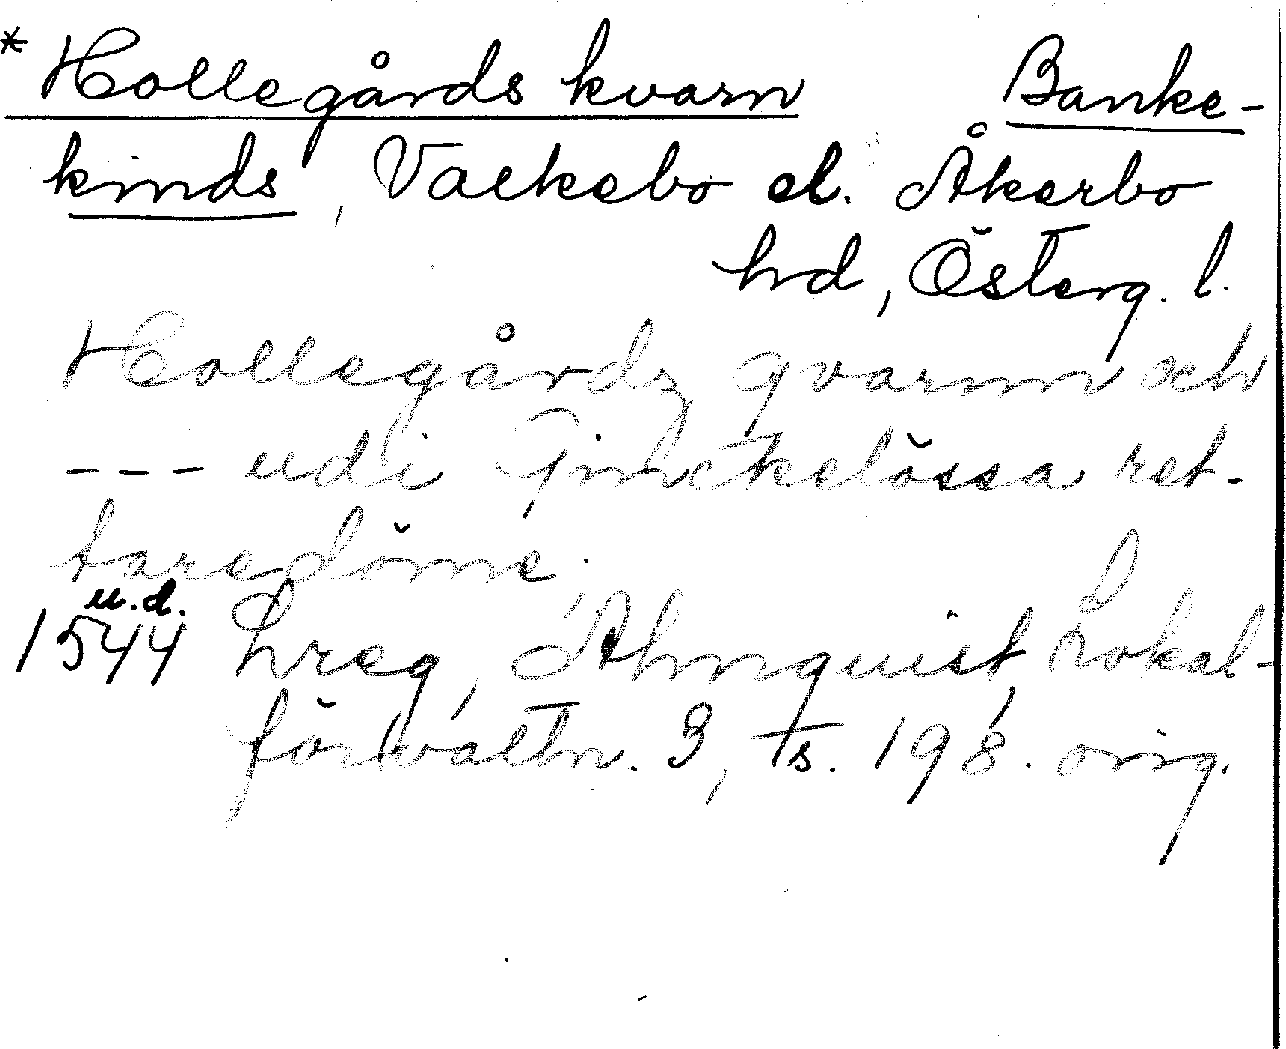 * Hollegårds kvarn Banke-
kinds, Valkebo el. Åkerbo
hd, Österg. l.
Hollegårdz qvarnn och
--- udi Ginckelössa ret-
taredöme.
1544 u.d. hreg, Almquist, Lokal-
förvaltn. 3, s. 198. orig.